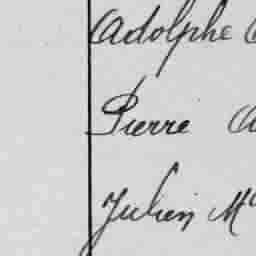 Adolphe
Pierre
Julien Mc